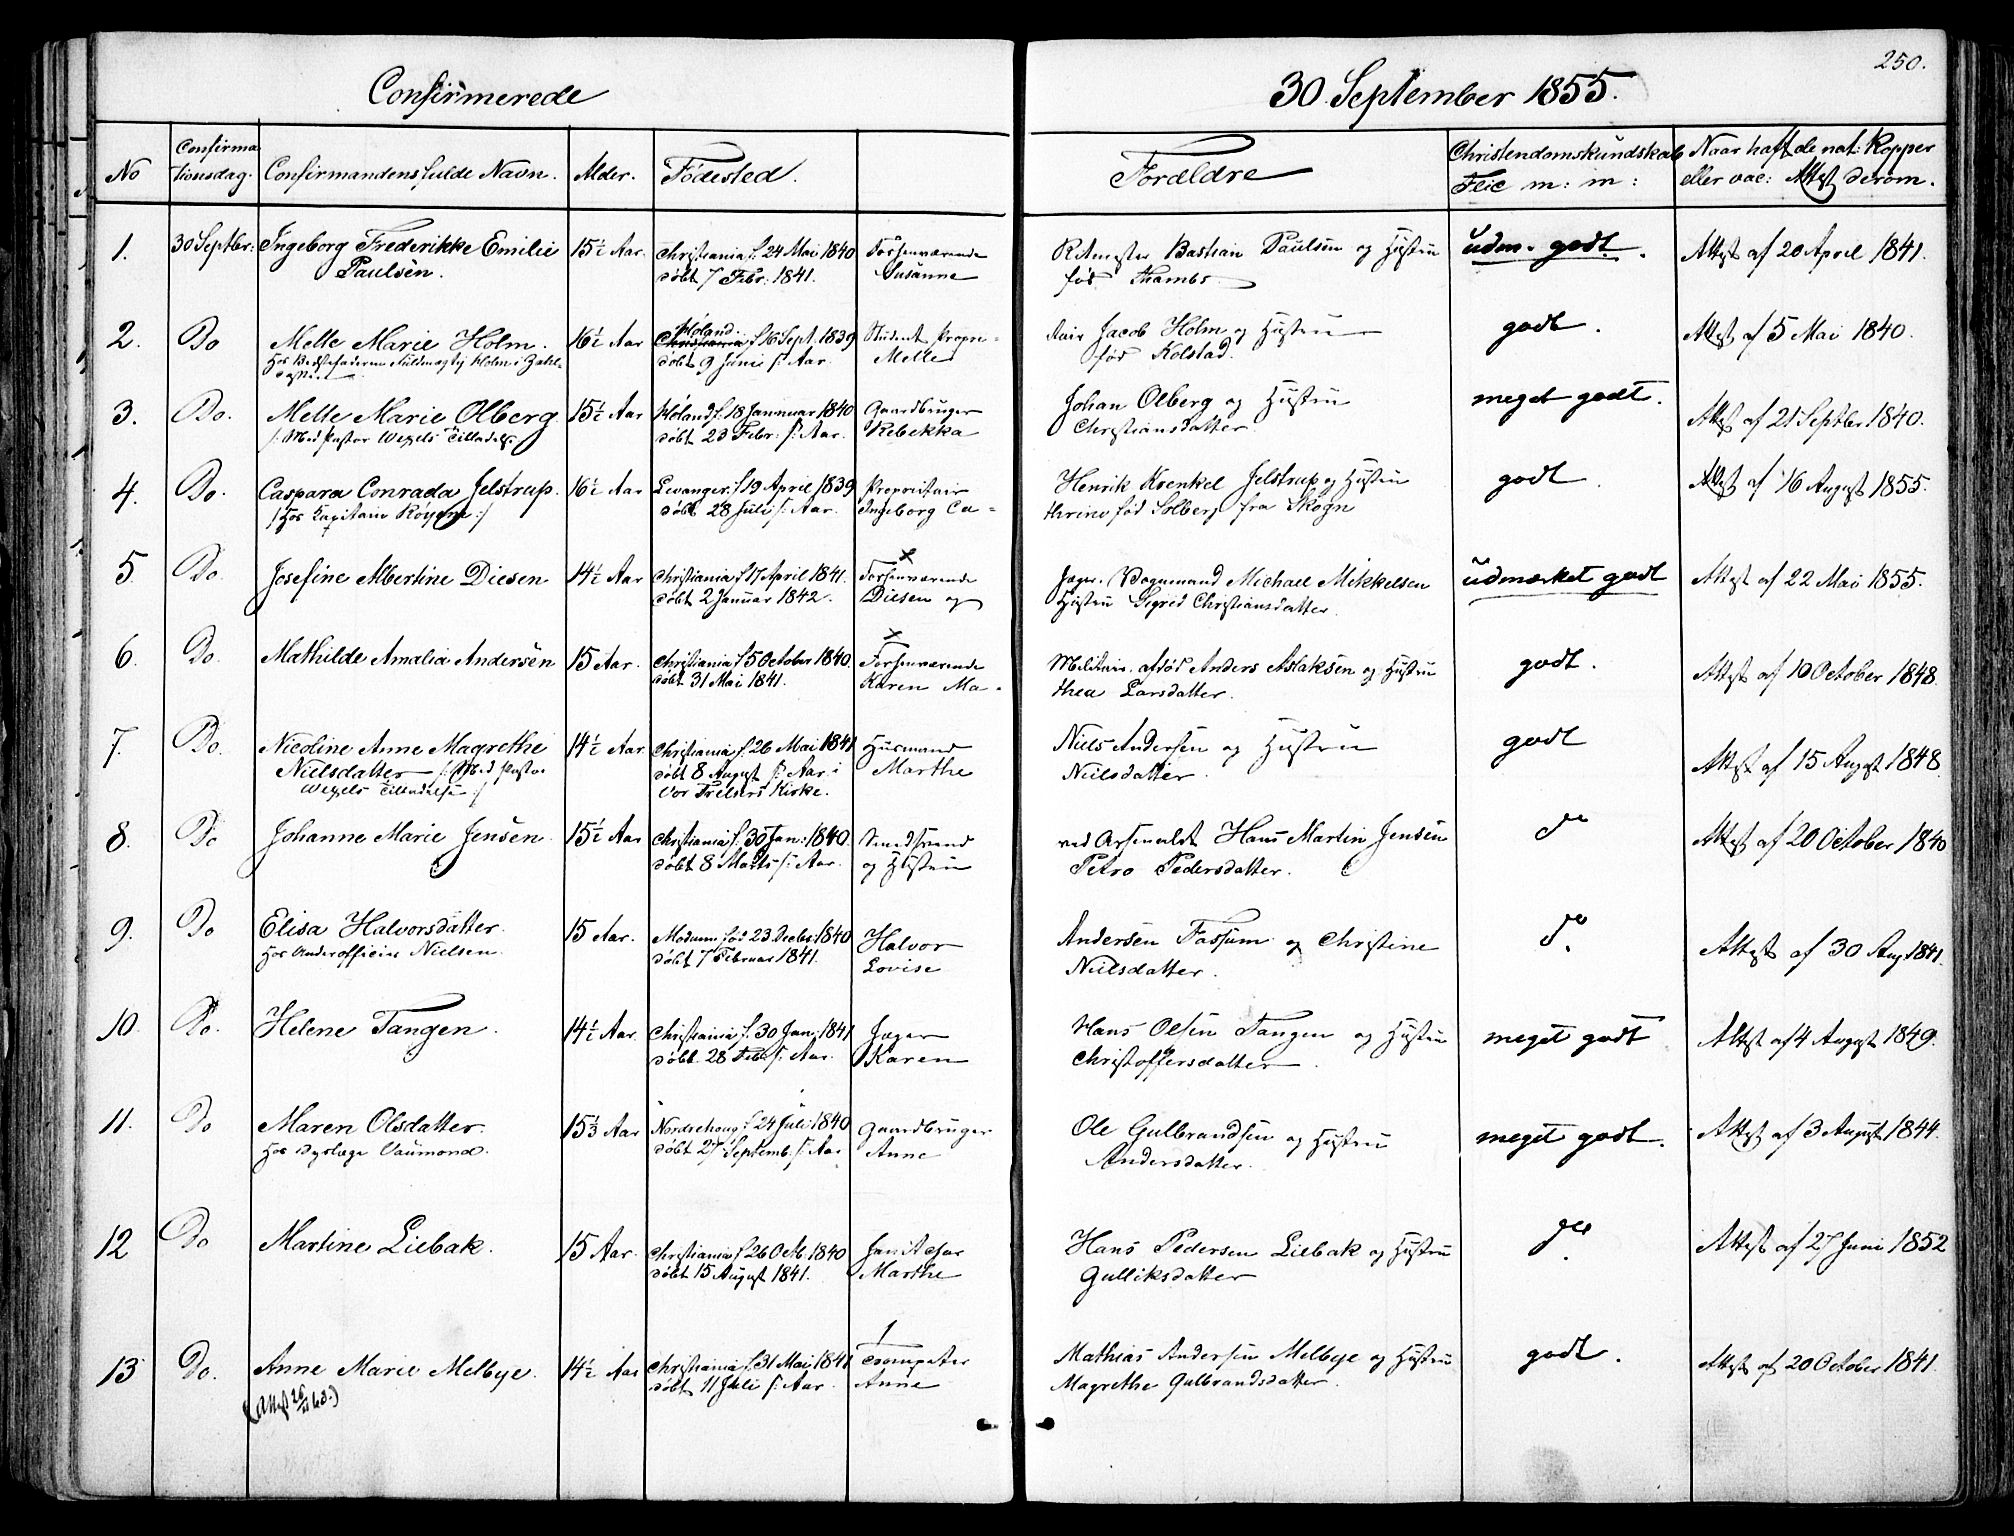 250.
Confirmerede 30. September 1855.
No Confirmationsdag. Confirmandens fulde Navn. Alder. Födested. Forældre Christendomskundskab Flid m: m: Naar haft de nat: Kopper eller vac: Attest derom.
1. 30 Septbr: Ingeborg Frederikke Emilie 15½ Aar. Christiania f. 24 Mai 1840 Forhenværende Ritmester Bastian Paulsen og Hustru udm. godt. Attest af 20 April 1841.
Paulsen. döbt 7 Febr: 1841. Susanne föd Thambs.
2. Do Mette Marie Holm. 16½ Aar Höland. f. 16 Sept. 1839 Student Propri- tair Jacob Holm og Hustru godt. Attest af 5 Mai 1840.
Hos Bedstefaderen Holm i döbt 9 Juni s: Aar. Mette föd Kolstad.
3. Do. Mette Marie Olberg 15½ Aar Höland f. 18 Januar 1840 Gaardbruger Johan Olberg og Hustru meget godt. Attest af 21 Septbr 1840.
/: Med Pastor Wexels Tilladelse döbt 23 Febr: s: Aar. Rebekka Christiansdatter.
4. Do. Caspara Conrada Jelstrup. 16½ Aar Levanger f. 19 April 1839 Proprietair Henrik Krenkel Jelstrup og Hustru godt. Attest af 16 August 1855.
/: Hos Kapitain :/ döbt 28 Juli s: Aar. Ingeborg Ca- thrine föd Solberg fra Skogn
5 Do. Josefine Albertine Diesen 14½ Aar Christiania f. 17 April 1841. Forhenværende Jæger. Vognmand Michael Mikkelsen udmærket godt Attest af 22 Mai 1855.
döbt 2 Januar 1842. Diesen og Hustru Sigrid Christiansdatter.
6. Do. Mathilde Amalia Andersen 15 Aar. Christiania f. 5 October 1840. Forhenværende Militair. Anders Aslaksen og Hustru godt. Attest af 10 October 1848.
döbt 31 Mai 1841. Karen Ma- thea Larsdatter.
7. Do. Nicoline Anne Magrethe 14½ Aar Christiania f. 26 Mai 1841 Husmand Niels Andersen og Hustru godt Attest af 15 August 1848.
Nielsdatter /: Med Pastor döbt 8 August s: Aar i Marthe Nielsdatter.
Wexels Tilladelse :/ Vor Frelsers Kirke.
8. Do Johanne Marie Jensen 15½ Aar Christiania f. 30 Jan: 1840. Smedsvend ved Arsenalet Hans Martin Jensen do Attest af 20 October 1840
döbt 8 Marts s: Aar. og Hustru Petra Pedersdatter.
9. Do Elisa Halvorsdatter. 15 Aar. Modum föd 23 Decbr: 1840 Halvor Andersen Fossum og Christine do. Attest af 30 Aug 1841.
Hos Underofficier Nielsen. döbt 7 Februar 1841. Lovise Nielsdatter.
10. Do. Helene Tangen. 14½ Aar. Christiania f. 30 Jan: 1841 Jæger Hans Olsen Tangen og Hustru meget godt Attest af 4 August 1849.
döbt 28 Feb: s: Aar. Karen Christoffersdatter.
11. Do Maren Olsdatter. 15⅓ Aar Nordrehoug f. 24 Juli 1840 Gaardbruger Ole Gulbrandsen og Hustru meget godt. Attest af 3 August 1844.
Hos Dyrlæge Vaumond. döbt 27 Septemb. s: Aar Anne Andersdatter.
12 Do Martine Liebak. 15 Aar. Christiania f. 26 Octb. 1840 Hans Pedersen Liebak og Hustru do. Attest af 27 Juni 1852
döbt 15 August 1841. Marthe Gulliksdatter
13 Do. Anne Marie Melbye. 14½ Aar Christiania f. 31 Mai 1841. Trompeter Mathias Andersen Melbye og Hustru godt. Attest af 20 October 1841.
döbt 11 Juli s: Aar. Anne Magrethe Gulbrandsdatter.
(Attest 26/11 60.)